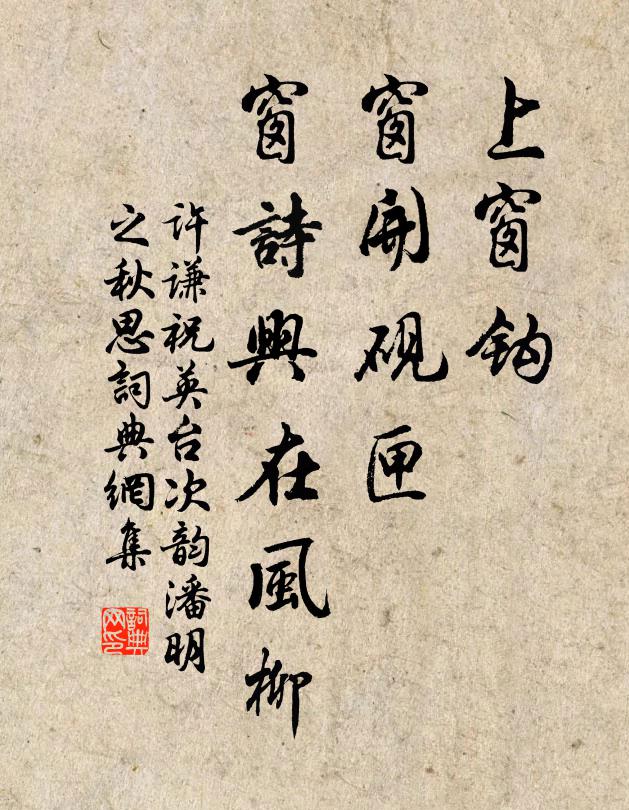 上窗鈎
窗開硯匣
窗詩興在風柳
許谦祝英台次韵潘明
之秋思詞典網集
詞典网印